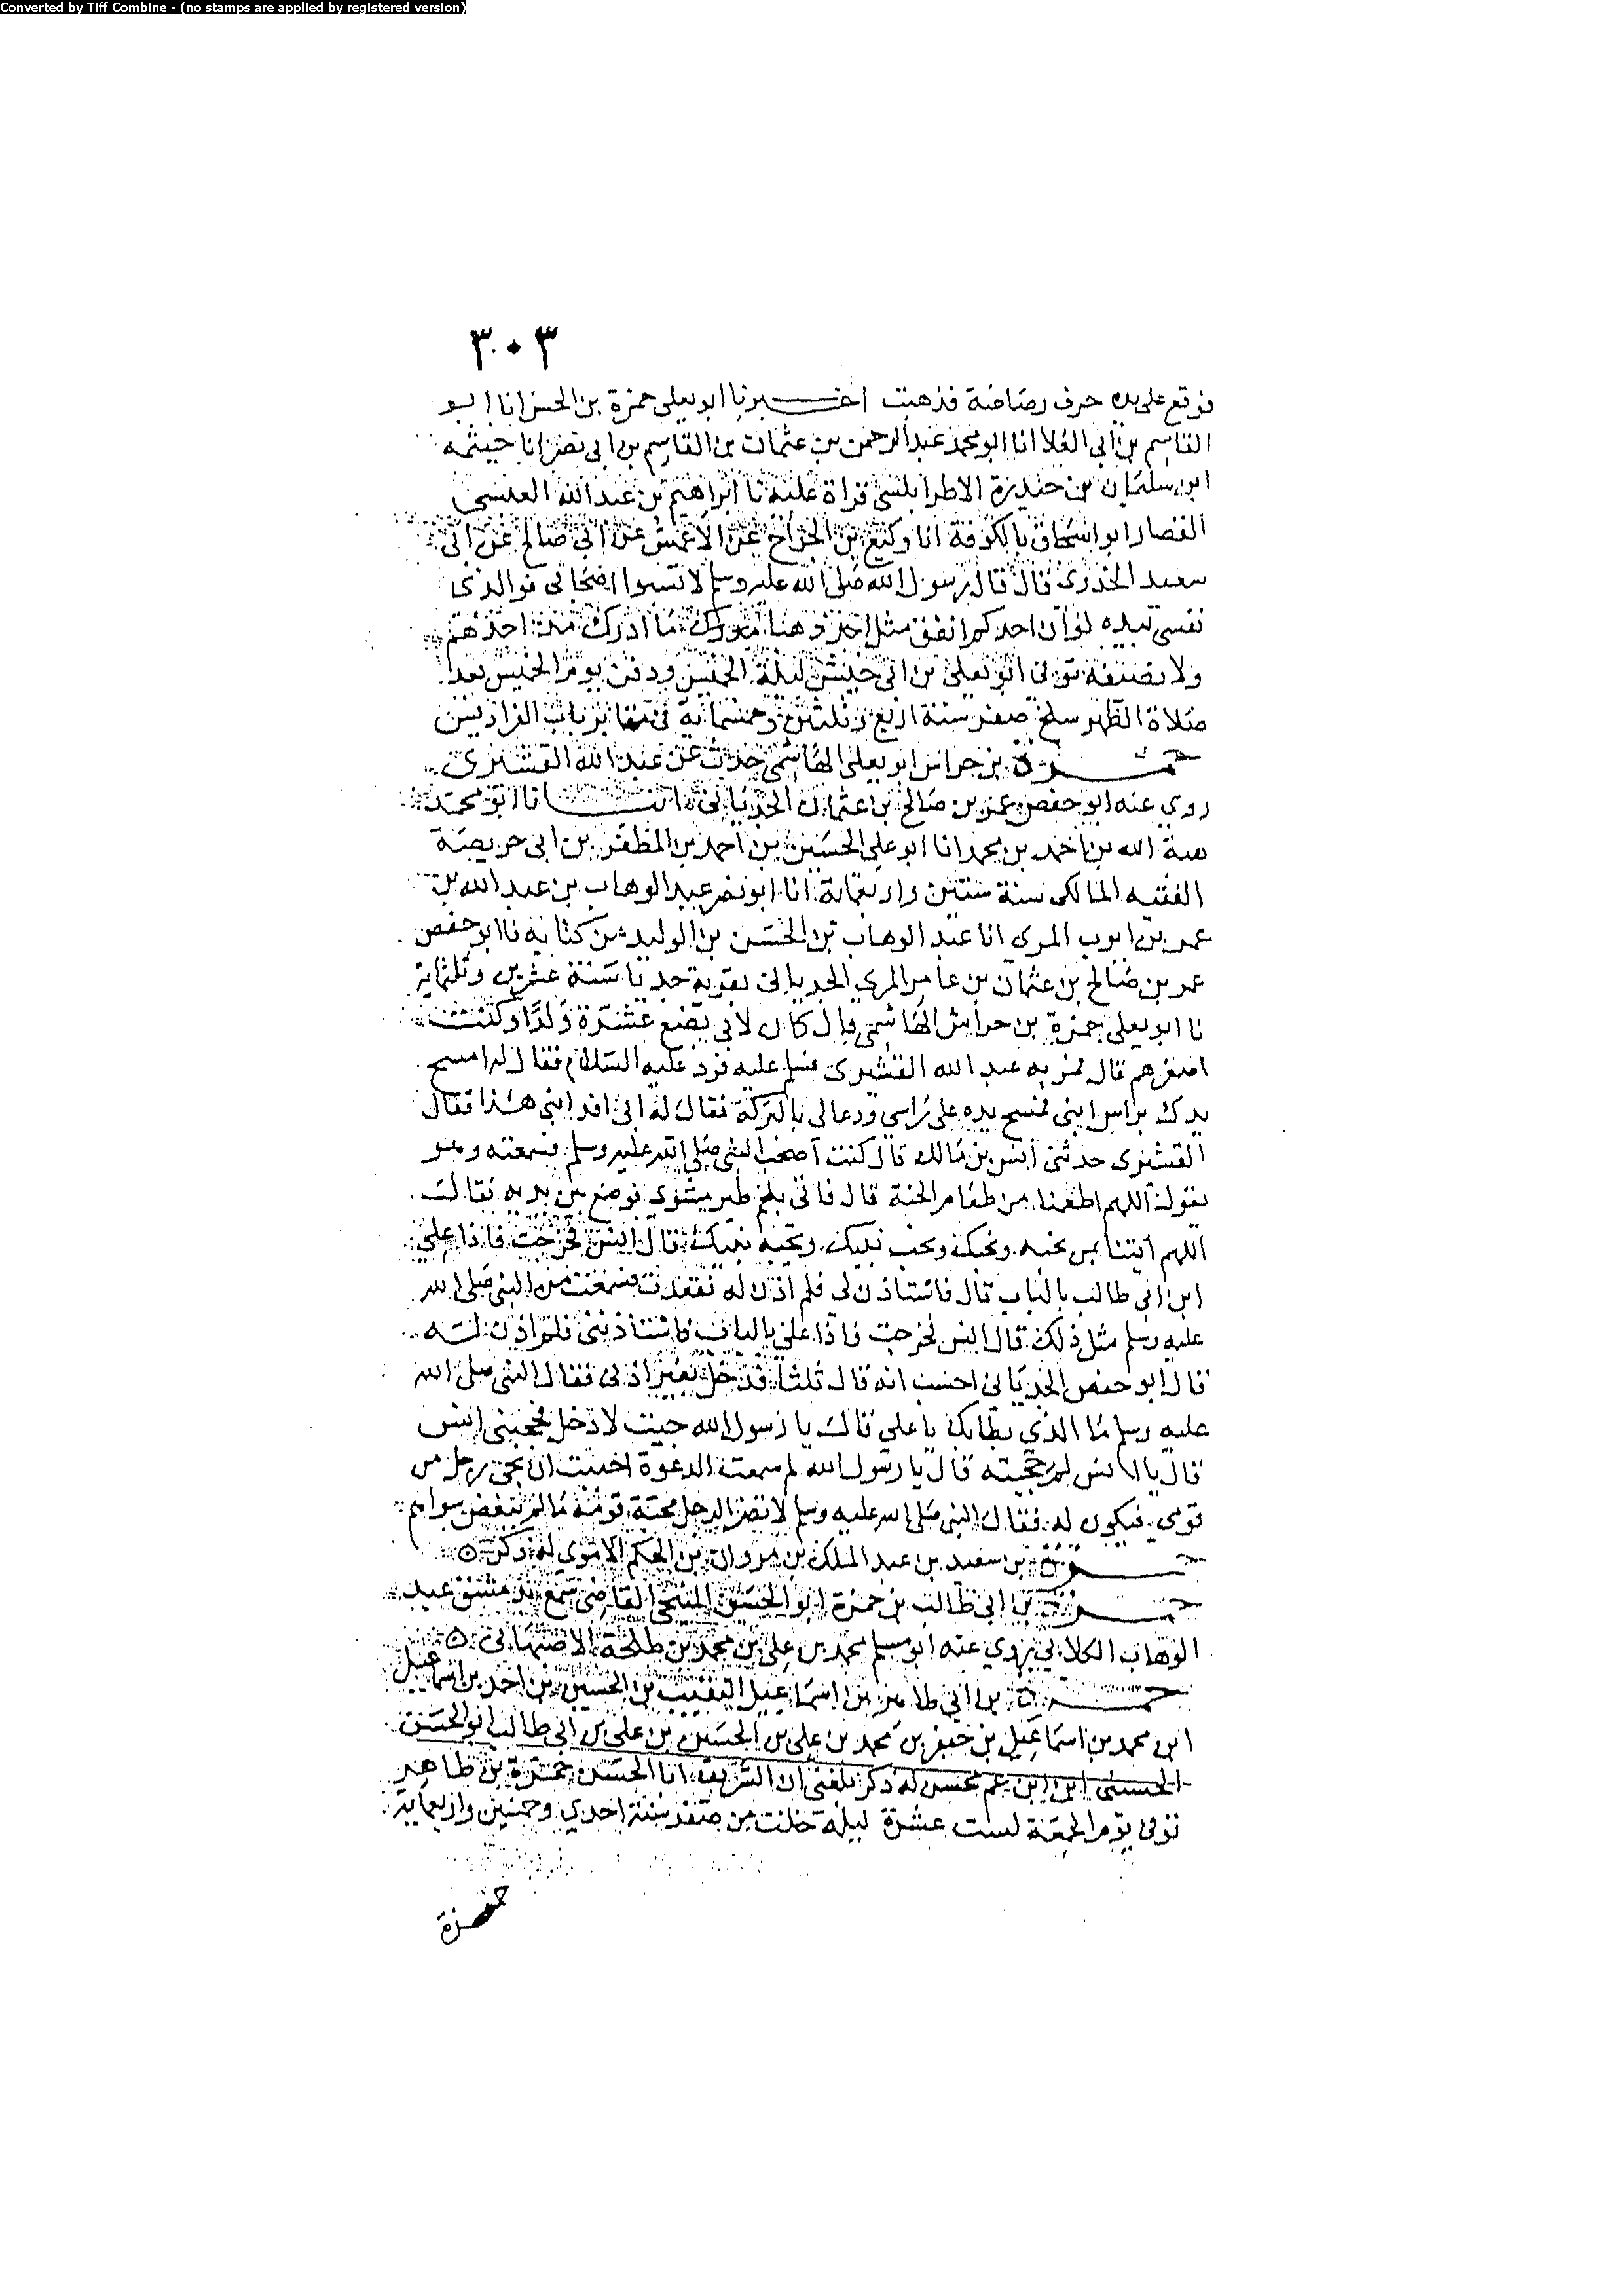 Converted by Tiff Combine - (no stamps are applied by registered version)
٣٠٣
فوقع على يده حرف رصاصة فذهبت اخبرنا ابو يعلى حمزة بن الحسن انا ابو
القاسم بن ابي العلا انا ابو محمد عبد الرحمن بن عثمان بن القاسم بن ابي نصر انا خيثمه
ابن سليمان بن حيدرة الاطرابلسي قراة عليه نا ابراهيم بن عبد الله العبسي
القصار ابو اسحاق بالكوفة انا وكيع بن الجراح عن الاعمش عن ابي صالح عن ابي
سعيد الخدري قال قال رسول الله صلى الله عليه وسلم لا تسبوا اصحابي فوالذي
نفسي بيده لو ان احدكم انفق مثل احد ذهبا ما ادرك مد احدهم
ولا نصيفه توفي ابو يعلى بن ابي خيش ليلة الخميس ودفن يوم الخميس بعد
صلاة الظهر سلخ صفر سنة اربع وثلثين وخمسماية في مقابر باب الفراديس
حمزة بن حراس ابو يعلى الهاشمي حدث عن عبد الله القشيري
روى عنه ابو حفص عمر بن صالح بن عثمان الجدياني انا ابو محمد
هبة الله بن احمد بن محمد انا ابو علي الحسين بن احمد بن المظفر بن ابي حريصة
الفقيه المالكي سنة ستين واربعماية انا ابو نصر عبد الوهاب بن عبد الله بن
عمر بن ايوب المري انا عبد الوهاب بن الحسن بن الوليد من كتابه نا ابو حفص
عمر بن صالح بن عثمان بن عامر المري الجدياني بقرية جديا سنة عشرين وثلثماية
نا ابو يعلى حمزة بن حراش الهاشمي قال كان لابي بضع عشرة ولدا وكنت
اصغرهم قال فمر به عبد الله القشيري فسلم عليه فرد عليه السلام فقال له امسح
يدك براس ابني فمسح يده على راسي ودعا لي بالبركة فقال له ابي افد ابني هذا فقال
القشيري حدثني انس بن مالك قال كنت اصحب النبي صلى الله عليه وسلم فسمعته وهو
يقول اللهم اطعمنا من طعام الجنة قال فاتي بلحم طير مشوي فوضع بين يديه فقال
اللهم ايتنا بمن نحبه ويحبك ويحب نبيك ويحبه نبيك قال انس فخرجت فاذا علي
ابن ابي طالب بالباب قال فاستاذن لي فلم اذن له فقعدت فسمعت من النبي صلى الله
عليه وسلم مثل ذلك قال انس فخرجت فاذا علي بالباب فاستاذنني فلم اذن له
قال ابو حفص الجدياني احسب انه قال ثلثا فدخل بغير اذني فقال النبي صلى الله
عليه وسلم ما الذي بطا بك يا علي قال يا رسول الله جيت لادخل فحجبني انس
قال يا انس لم حجبته قال يا رسول الله لم سمعت الدعوة احببت ان يجي رجل من
قومي فيكون له فقال النبي صلى الله عليه وسلم لا تضر الرجل محبة قومه ما لم يبغض سواهم
حمزة بن سعيد بن عبد الملك بن مروان بن الحكم الاموي له ذكر
حمزة بن ابي طالب بن حمزة ابو الحسن القاضي سمع بدمشق عبد
الوهاب الكلابي يروي عنه ابو مسلم محمد بن علي بن محمد بن طلحة الاصبهاني
حمزة بن ابي طاهر بن اسماعيل النقيب بن الحسين بن احمد بن اسماعيل
ابن محمد بن اسماعيل بن جعفر بن محمد بن علي بن الحسين بن علي بن ابي طالب ابو الحسن
الحسيني ابن ابن عم محسن له ذكر بلغني ان الشريف ابا الحسن حمزة بن طاهر
توفي يوم الجمعة لست عشرة ليلة خلت من صفر سنة احدي وخمسين واربعماية
حمزة